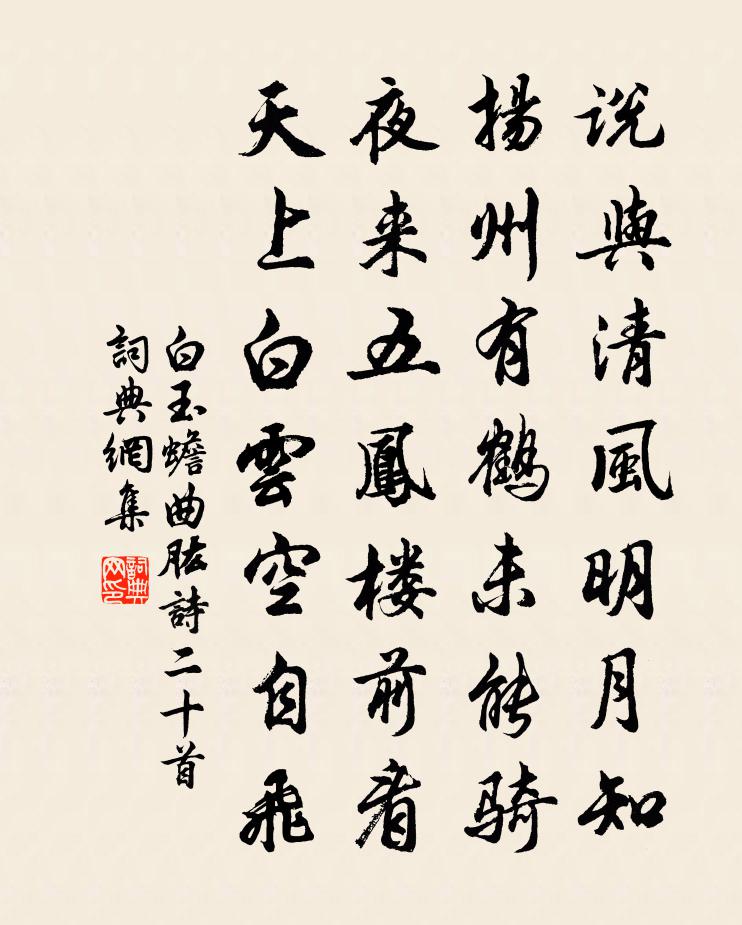 说與清風明月知
揚州有鹤未能骑
夜来五鳳楼前看
天上白雲空自飛
白玉蟾曲肱詩二十首
詞典網集
詞典网印